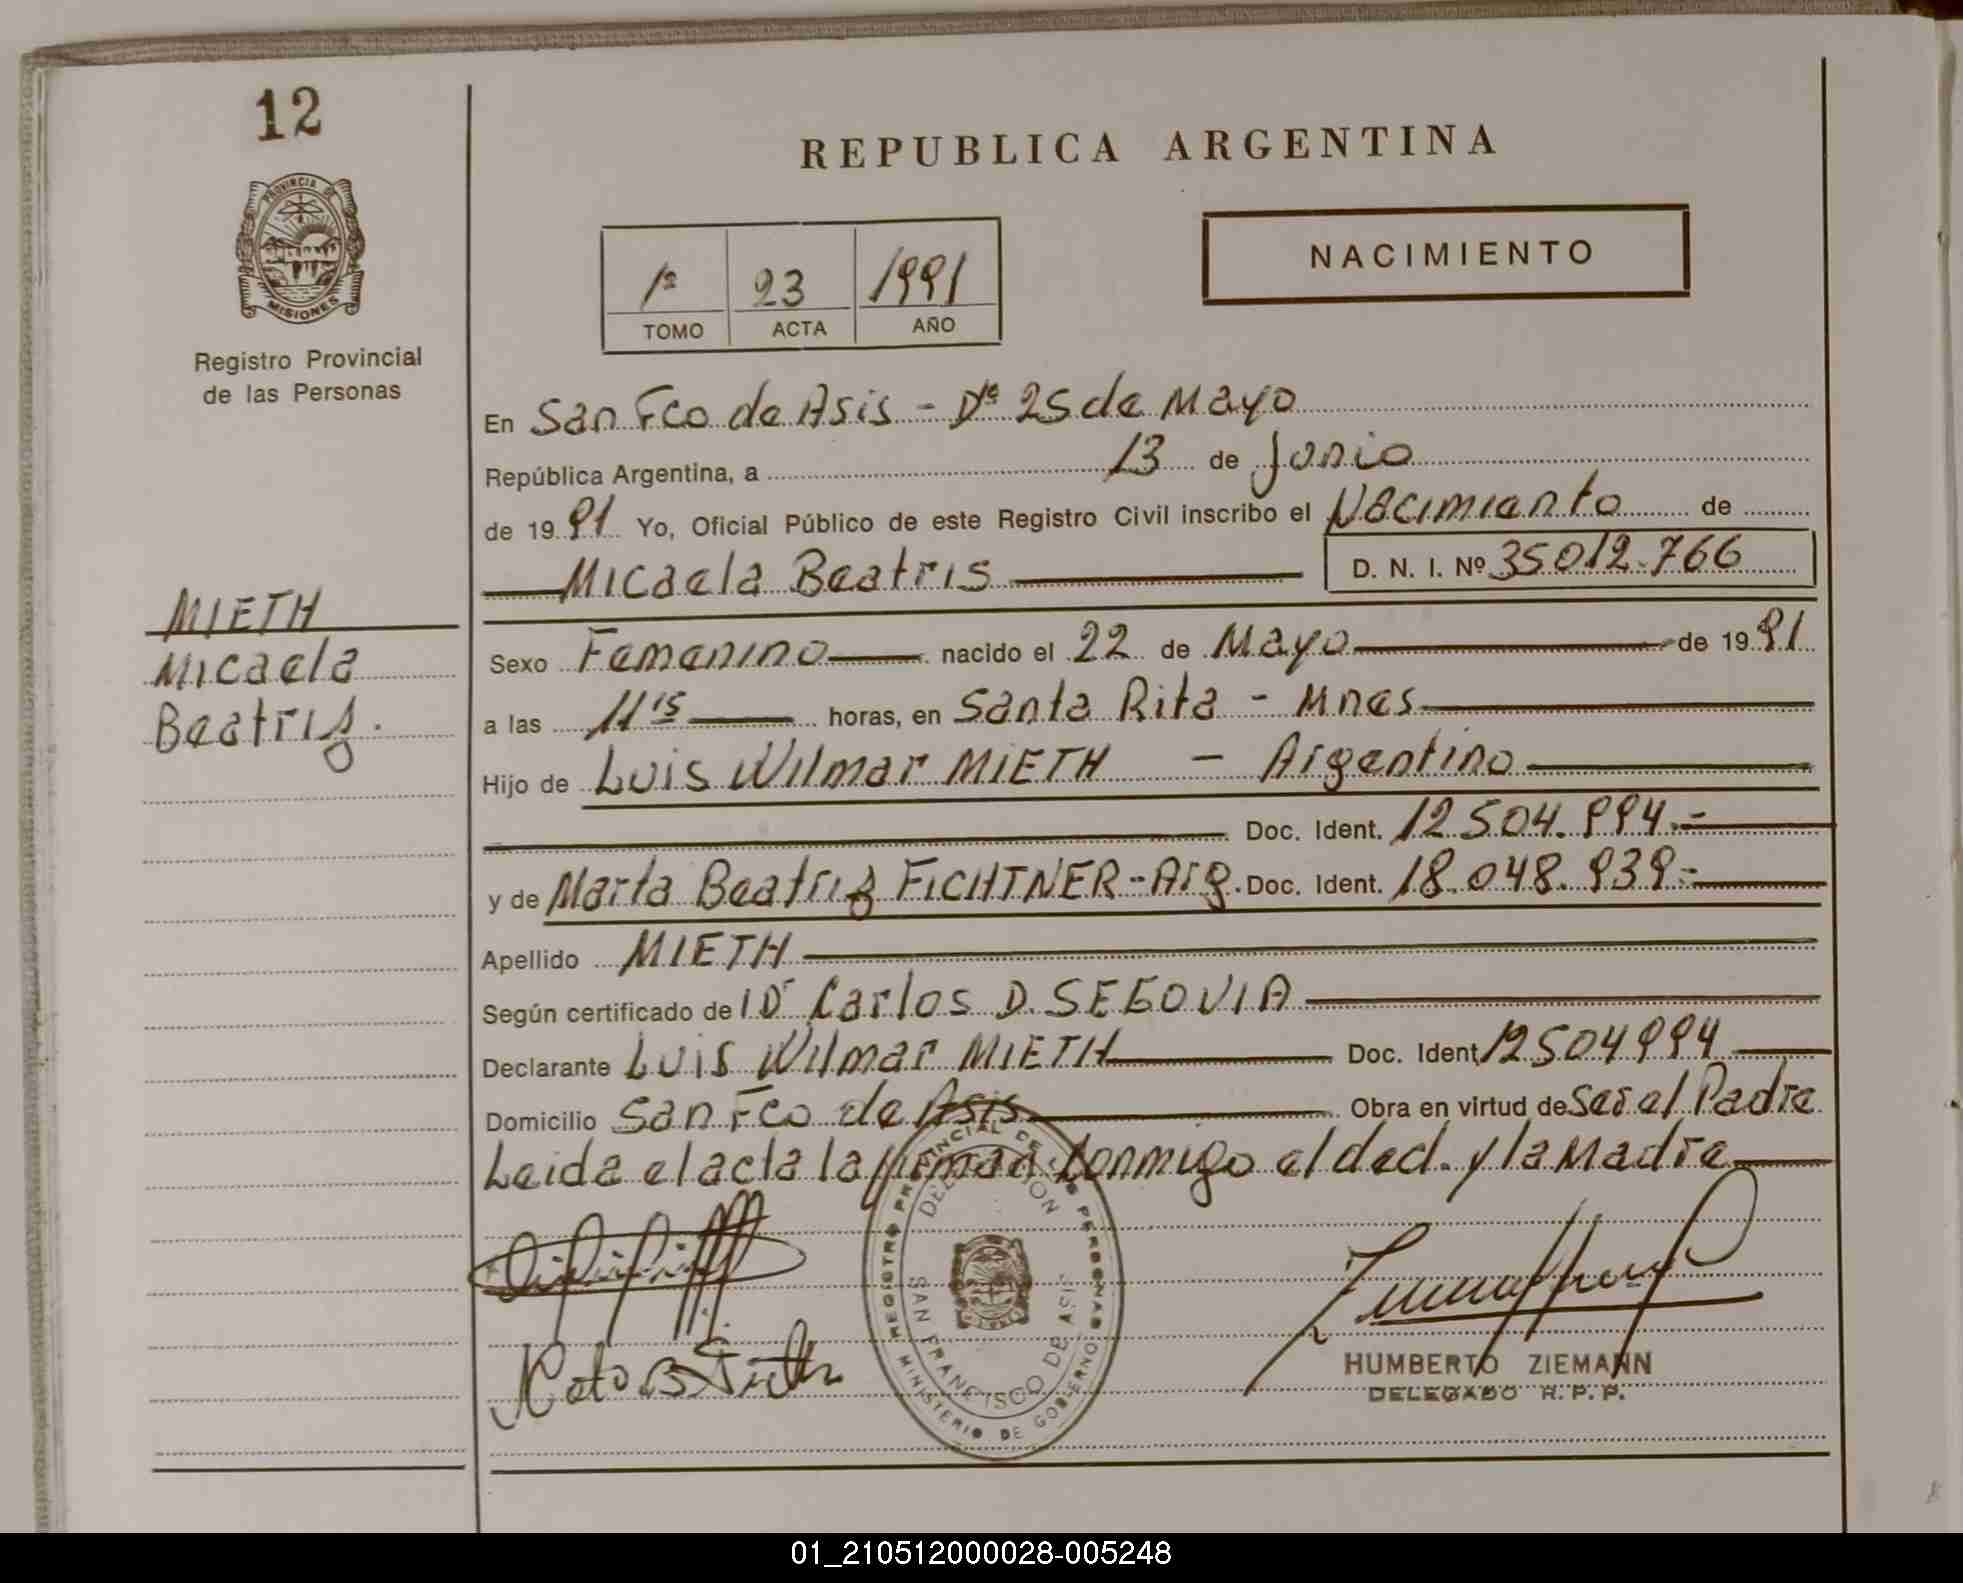 12
REPUBLICA ARGENTINA
NACIMIENTO
1º 23 1991
TOMO ACTA AÑO
PROVINCIA DE MISIONES
Registro Provincial
de las Personas
En San Fco de Asis - Dº 25 de Mayo
República Argentina, a 13 de Junio
de 1991 Yo, Oficial Público de este Registro Civil inscribo el Nacimiento de
Micaela Beatris D. N. I. Nº 35012.766
MIETH
Micaela
Beatriz.
Sexo Femenino nacido el 22 de Mayo de 1991
a las 11'15 horas, en Santa Rita - Mnes
Hijo de Luis Wilmar MIETH - Argentino
Doc. Ident. 12.504.994.-
y de Marta Beatriz FICHTNER - Arg. Doc. Ident. 18.048.939.-
Apellido MIETH
Según certificado de Dr Carlos D. SEGOVIA
Declarante Luis Wilmar MIETH Doc. Ident. 12504994
Domicilio San Fco de Asis Obra en virtud de Ser el Padre
Leida el acta la firman conmigo el decl. y la Madre
REGISTRO PROVINCIAL DE LAS PERSONAS
DELEGACION
SAN FRANCISCO DE ASIS
MINISTERIO DE GOBIERNO
HUMBERTO ZIEMANN
DELEGADO R.P.P.
01_210512000028-005248